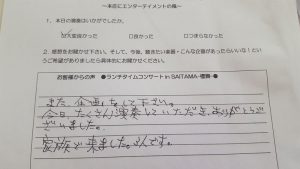 〜本荘にエンターテイメントの風〜
1. 本日の演奏はいかがでしたか。
大変良かった □良かった □つまらなかった
2. 感想をお聞かせ下さい。そして、今後、聴きたい楽器・こんな企画があったらいいな！とい
うご希望がありましたら具体的にお聞かせください。
お客様からの声 ●ランチタイムコンサート in SAITAMA-
また、企画をして下さい。
今日、たくさん演奏していただき、ありがとうご
ざいました。
家族で来ました。さんです。